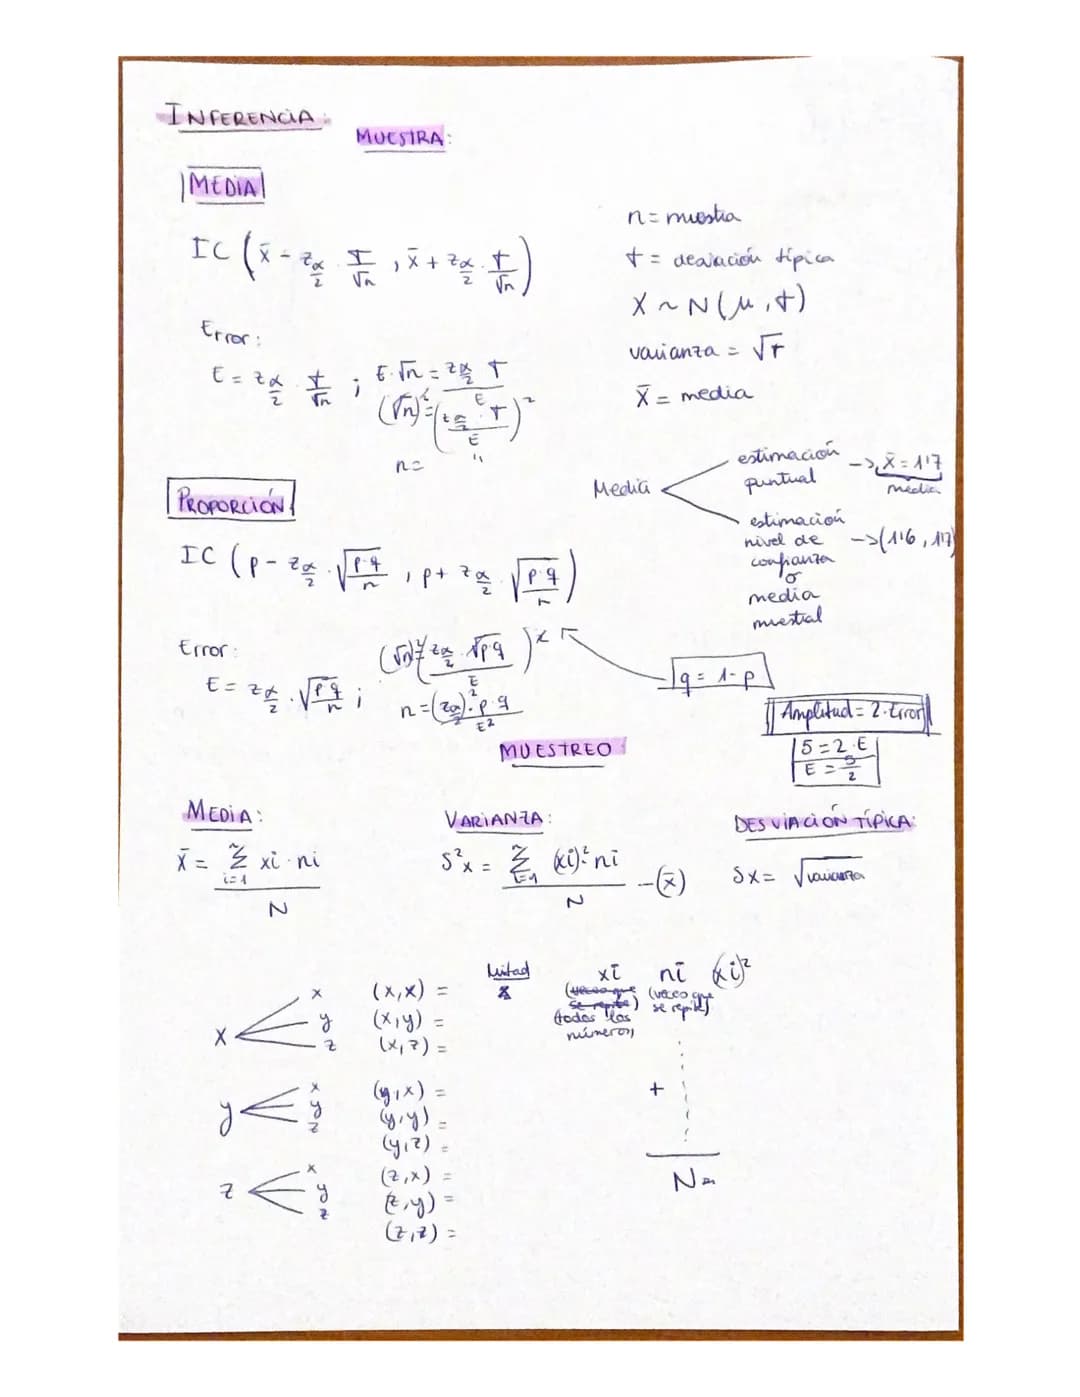 INFERENCIA:
MUESTRA:
MEDIA
IC (x̄ - z α/2 · σ/√n , x̄ + z α/2 · σ/√n)
n = muestra
σ = desviación típica
X ~ N(μ, σ)
varianza = √σ
x̄ = media
Error:
E = z α/2 · σ/√n ; E·√n = z α/2 σ
(√n)² = (z α/2 · σ / E)²
n = "
Media
estimación puntual -> x̄ = 1'7
media
estimación
nivel de -> (1'6, 1'7)
confianza
o
media
muestral
PROPORCIÓN
IC (p - z α/2 · √(p·q/n) , p + z α/2 · √(p·q/n))
Error:
E = z α/2 · √(p·q/n) ; (√n)² = (z α/2 · √p·q / E)²
n = (z α/2)² · p·q / E²
q = 1-p
Amplitud = 2·Error
5 = 2·E
E = 5/2
MUESTREO
MEDIA:
x̄ = Σ i=1 xi·ni / N
VARIANZA:
S²x = Σ i=1 (xi)²·ni / N - (x̄)
DESVIACIÓN TÍPICA:
Sx = √varianza
x
x
y
z
(x,x) =
(x,y) =
(x,z) =
y
x
y
z
(y,x) =
(y,y) =
(y,z) =
z
x
y
z
(z,x) =
(z,y) =
(z,z) =
Mitad
xi ni (xi)²
(veces que se repite) (veces que se repite)
(todos los
números)
+
N =